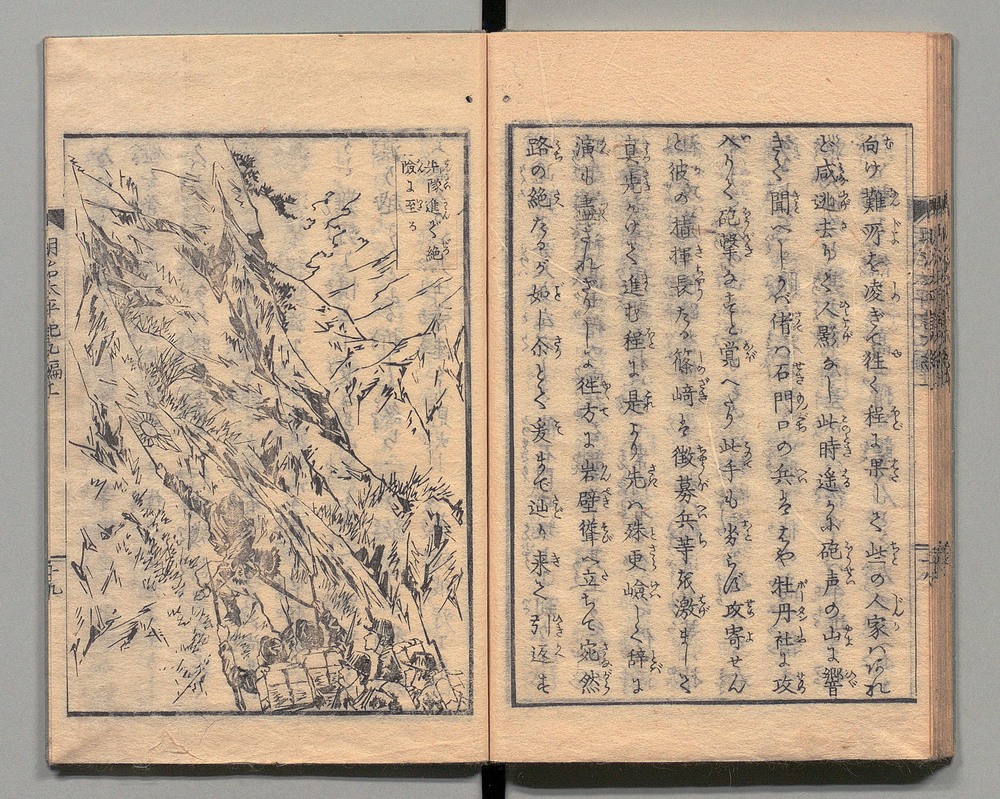 向け難所を凌ぎて往く程に果して些の人家ハあれ
ど咸逃去りて人影なし此時遥かに砲声の山に響
きて聞へしかバ偖ハ石門口の兵はゝや牡丹社に攻
入りて砲撃なすと覚へたり此手も劣らず攻寄せん
と彼の指揮長たる篠﨑は徴募兵等を激まして
真先かけて進む程に是より先ハ殊更嶮しく辞に
演も盡されざりしに徃方に岩壁聳へ立ちて宛然
路の絶たるが如し尒とて爰まで辿り来て引返も
兵隊進ンで絶
險に至る
明治太平記九編上
十九